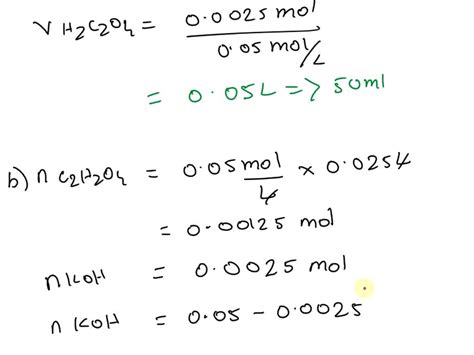 V H2C2O4 = 0.0025 mol / 0.05 mol/L
= 0.05L => 50ml
b) n C2H2O4 = 0.05 mol/L × 0.025L
= 0.00125 mol
n KOH = 0.0025 mol
n KOH = 0.05 - 0.0025